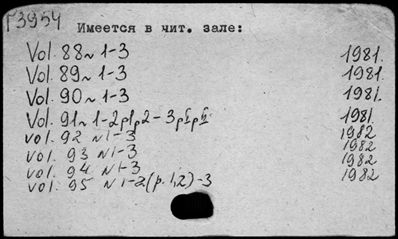 Г3954
Имеется в чит. зале:
Vol. 88 N 1-3 1981.
Vol. 89 N 1-3 1981.
Vol. 90 N 1-3 1981.
Vol. 91 N 1-2 p1 p2 - 3 1981.
vol. 92 N 1-3 1982
vol. 93 N 1-3 1982
vol. 94 N 1-3 1982
vol. 95 N 1-2 (p. 1,2) -3 1982